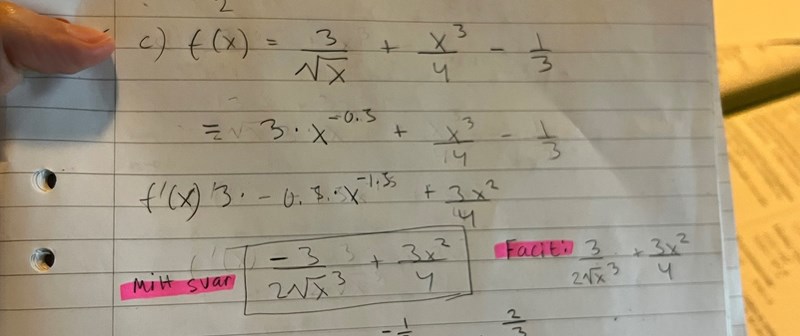 c) f(x) = 3/√x + x³/4 - 1/3
= 3 · x^-0.5 + x³/4 - 1/3
f'(x) 3 · -0.5 · x^-1.5 + 3x²/4
Mitt svar -3/2√x³ + 3x²/4 Facit: 3/2√x³ + 3x²/4